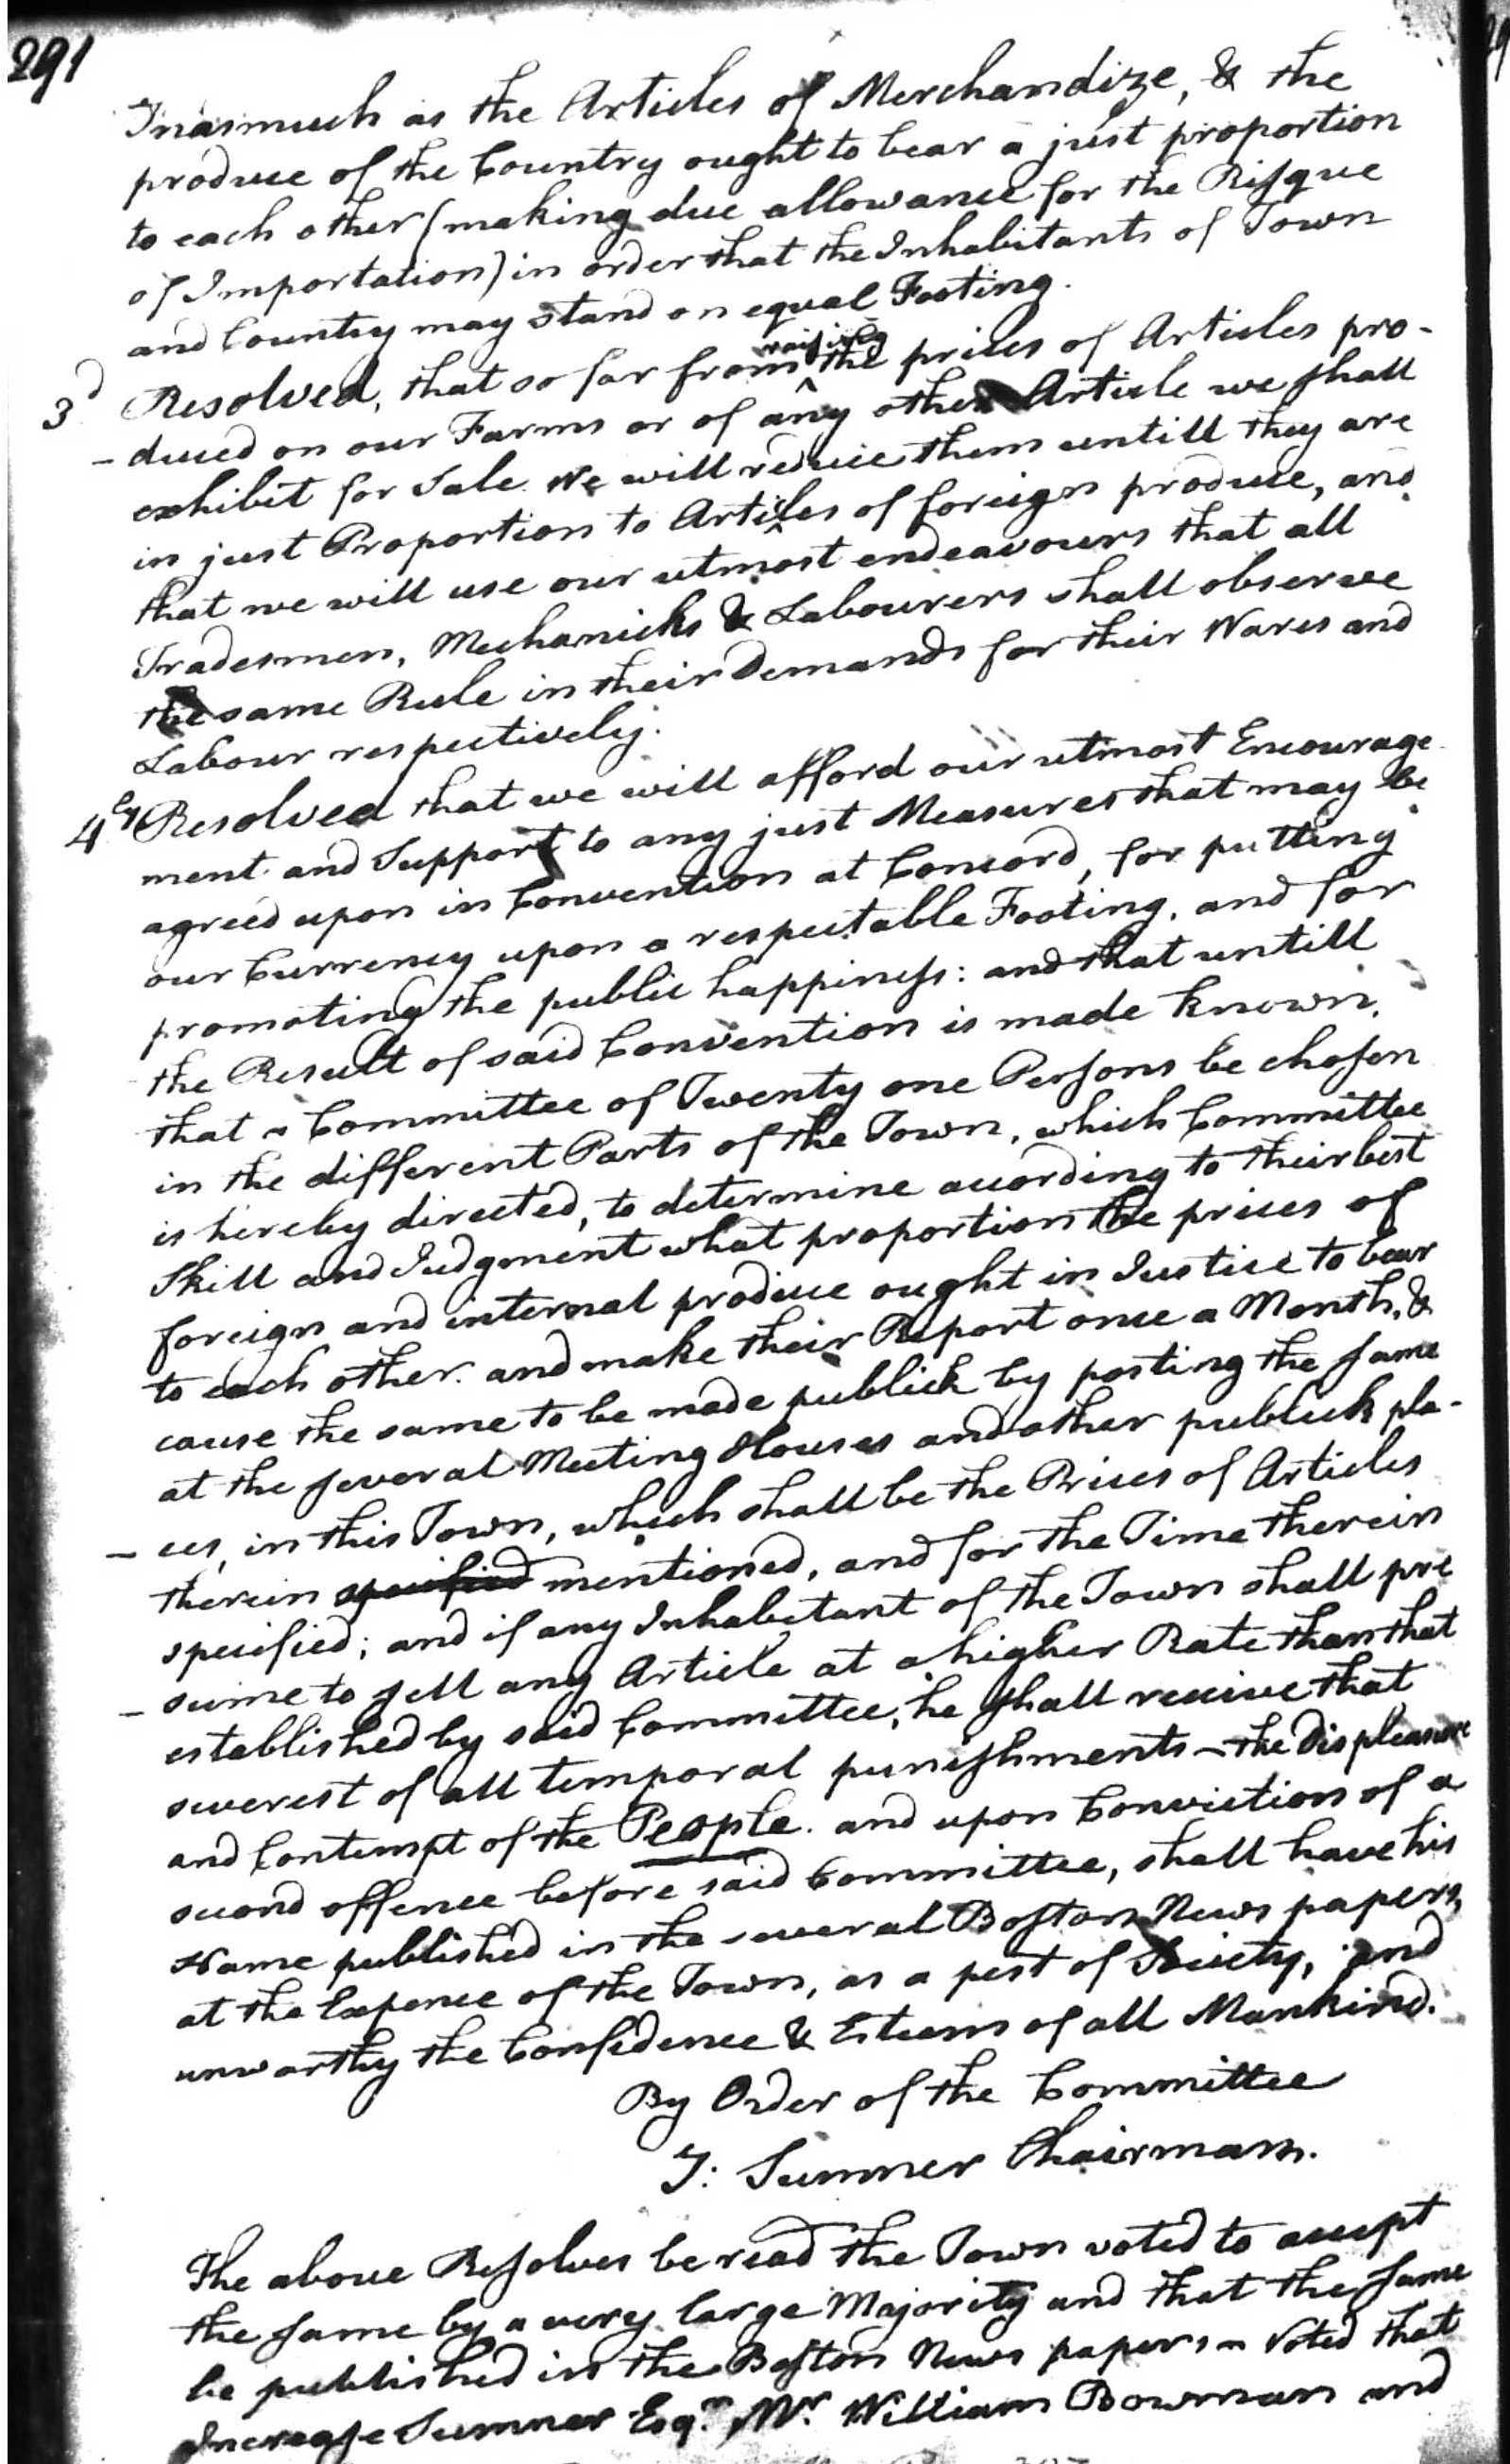 291
Inasmuch as the Articles of Merchandize, & the
produce of the Country ought to bear a just proportion
to each other (making due allowance for the Risque
of Importation) in order that the Inhabitants of Town
and Country may stand on equal Footing.
3d Resolved, that so far from raising the prices of Articles pro-
- duced on our Farms or of any other Article we shall
exhibit for Sale We will reduce them untill they are
in just Proportion to Articles of foreign produce, and
that we will use our utmost endeavours that all
Tradesmen, Mechanicks & Labourers shall observe
the same Rule in their Demands for their Wares and
Labour respectively.
4ly Resolved that we will afford our utmost Encourage
ment and Support to any just Measures that may be
agreed upon in Convention at Concord, for putting
our Currency upon a respectable Footing, and for
promoting the public happiness: and that untill
the Result of said Convention is made known,
that a Committee of Twenty one Persons be chosen
in the different Parts of the Town, which Committee
is hereby directed, to determine according to their best
Skill and Judgment what proportion the prices of
foreign and internal produce ought in Justice to bear
to each other. and make their Report once a Month, &
cause the same to be made publick by posting the same
at the several Meeting Houses and other publick pla-
- ces, in this Town, which shall be the Prices of Articles
therein specified mentioned, and for the Time therein
specified; and if any Inhabitant of the Town shall pre
- sume to sell any Article at a higher Rate than that
established by said Committee, he shall receive that
severest of all temporal punishments - the Displeasure
and Contempt of the People. and upon Conviction of a
second offence before said Committee, shall have his
Name published in the several Boston News papers,
at the Expence of the Town, as a pest of Society, and
unworthy the Confidence & Esteem of all Mankind.
By Order of the Committee
I: Sumner Chairman.
The above Resolves be read the Town voted to accept
the same by a very large Majority and that the same
be published in the Boston News papers - Voted that
Increase Sumner Esqr. Mr. William Bowman and